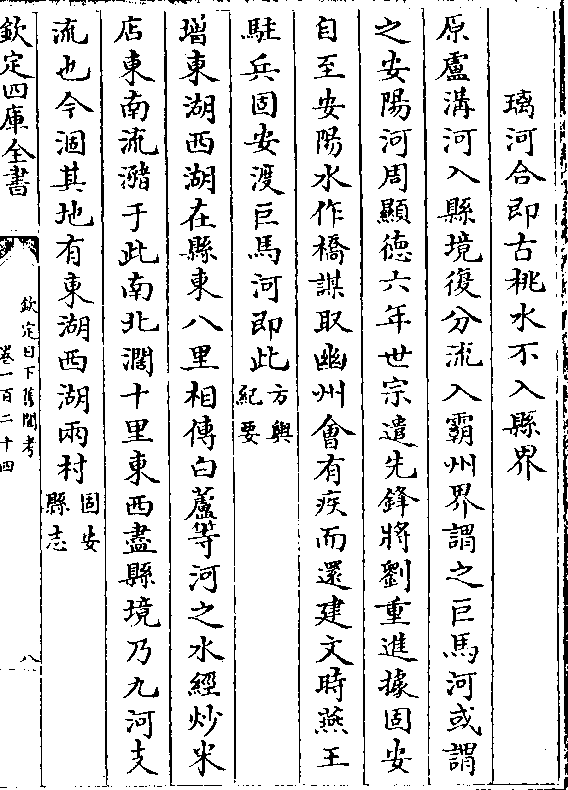 璃河合即古桃水不入縣界
原盧溝河入縣境復分流入霸州界謂之巨馬河或謂
之安陽河周顯德六年世宗遣先鋒將劉重進據固安
自至安陽水作橋謀取幽州會有疾而還建文時燕王
駐兵固安渡巨馬河即此方輿紀要
增東湖西湖在縣東八里相傳白蘆等河之水經炒米
店東南流瀦于此南北濶十里東西盡縣境乃九河支
流也今涸其地有東湖西湖兩村固安縣志
欽定四庫全書
欽定日下舊聞考
卷一百二十四
八